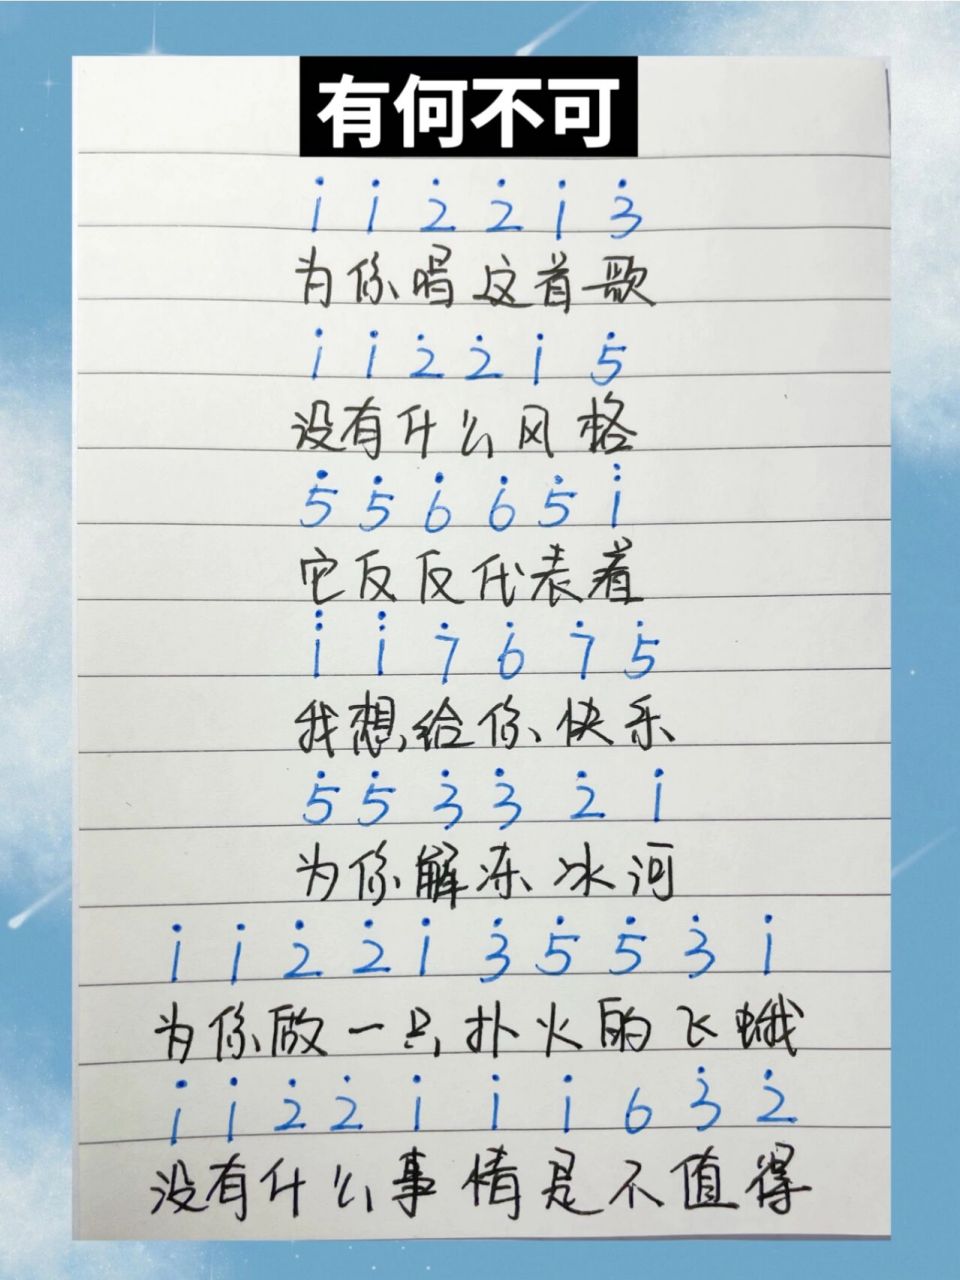 有何不可
i̇ i̇ 2̇ 2̇ i̇ 3̇
为你唱这首歌
i̇ i̇ 2̇ 2̇ i̇ 5̇
没有什么风格
5̇ 5̇ 6̇ 6̇ 5̇ 1̈
它仅仅代表着
1̈ 1̈ 7̇ 6̇ 7̇ 5̇
我想给你快乐
5̇ 5̇ 3̇ 3̇ 2̇ 1̇
为你解冻冰河
1̇ 1̇ 2̇ 2̇ 1̇ 3̇ 5̇ 5̇ 3̇ 1̇
为你做一只扑火的飞蛾
1̇ 1̇ 2̇ 2̇ 1̇ 1̇ 1̇ 6 3̇ 2̇
没有什么事情是不值得